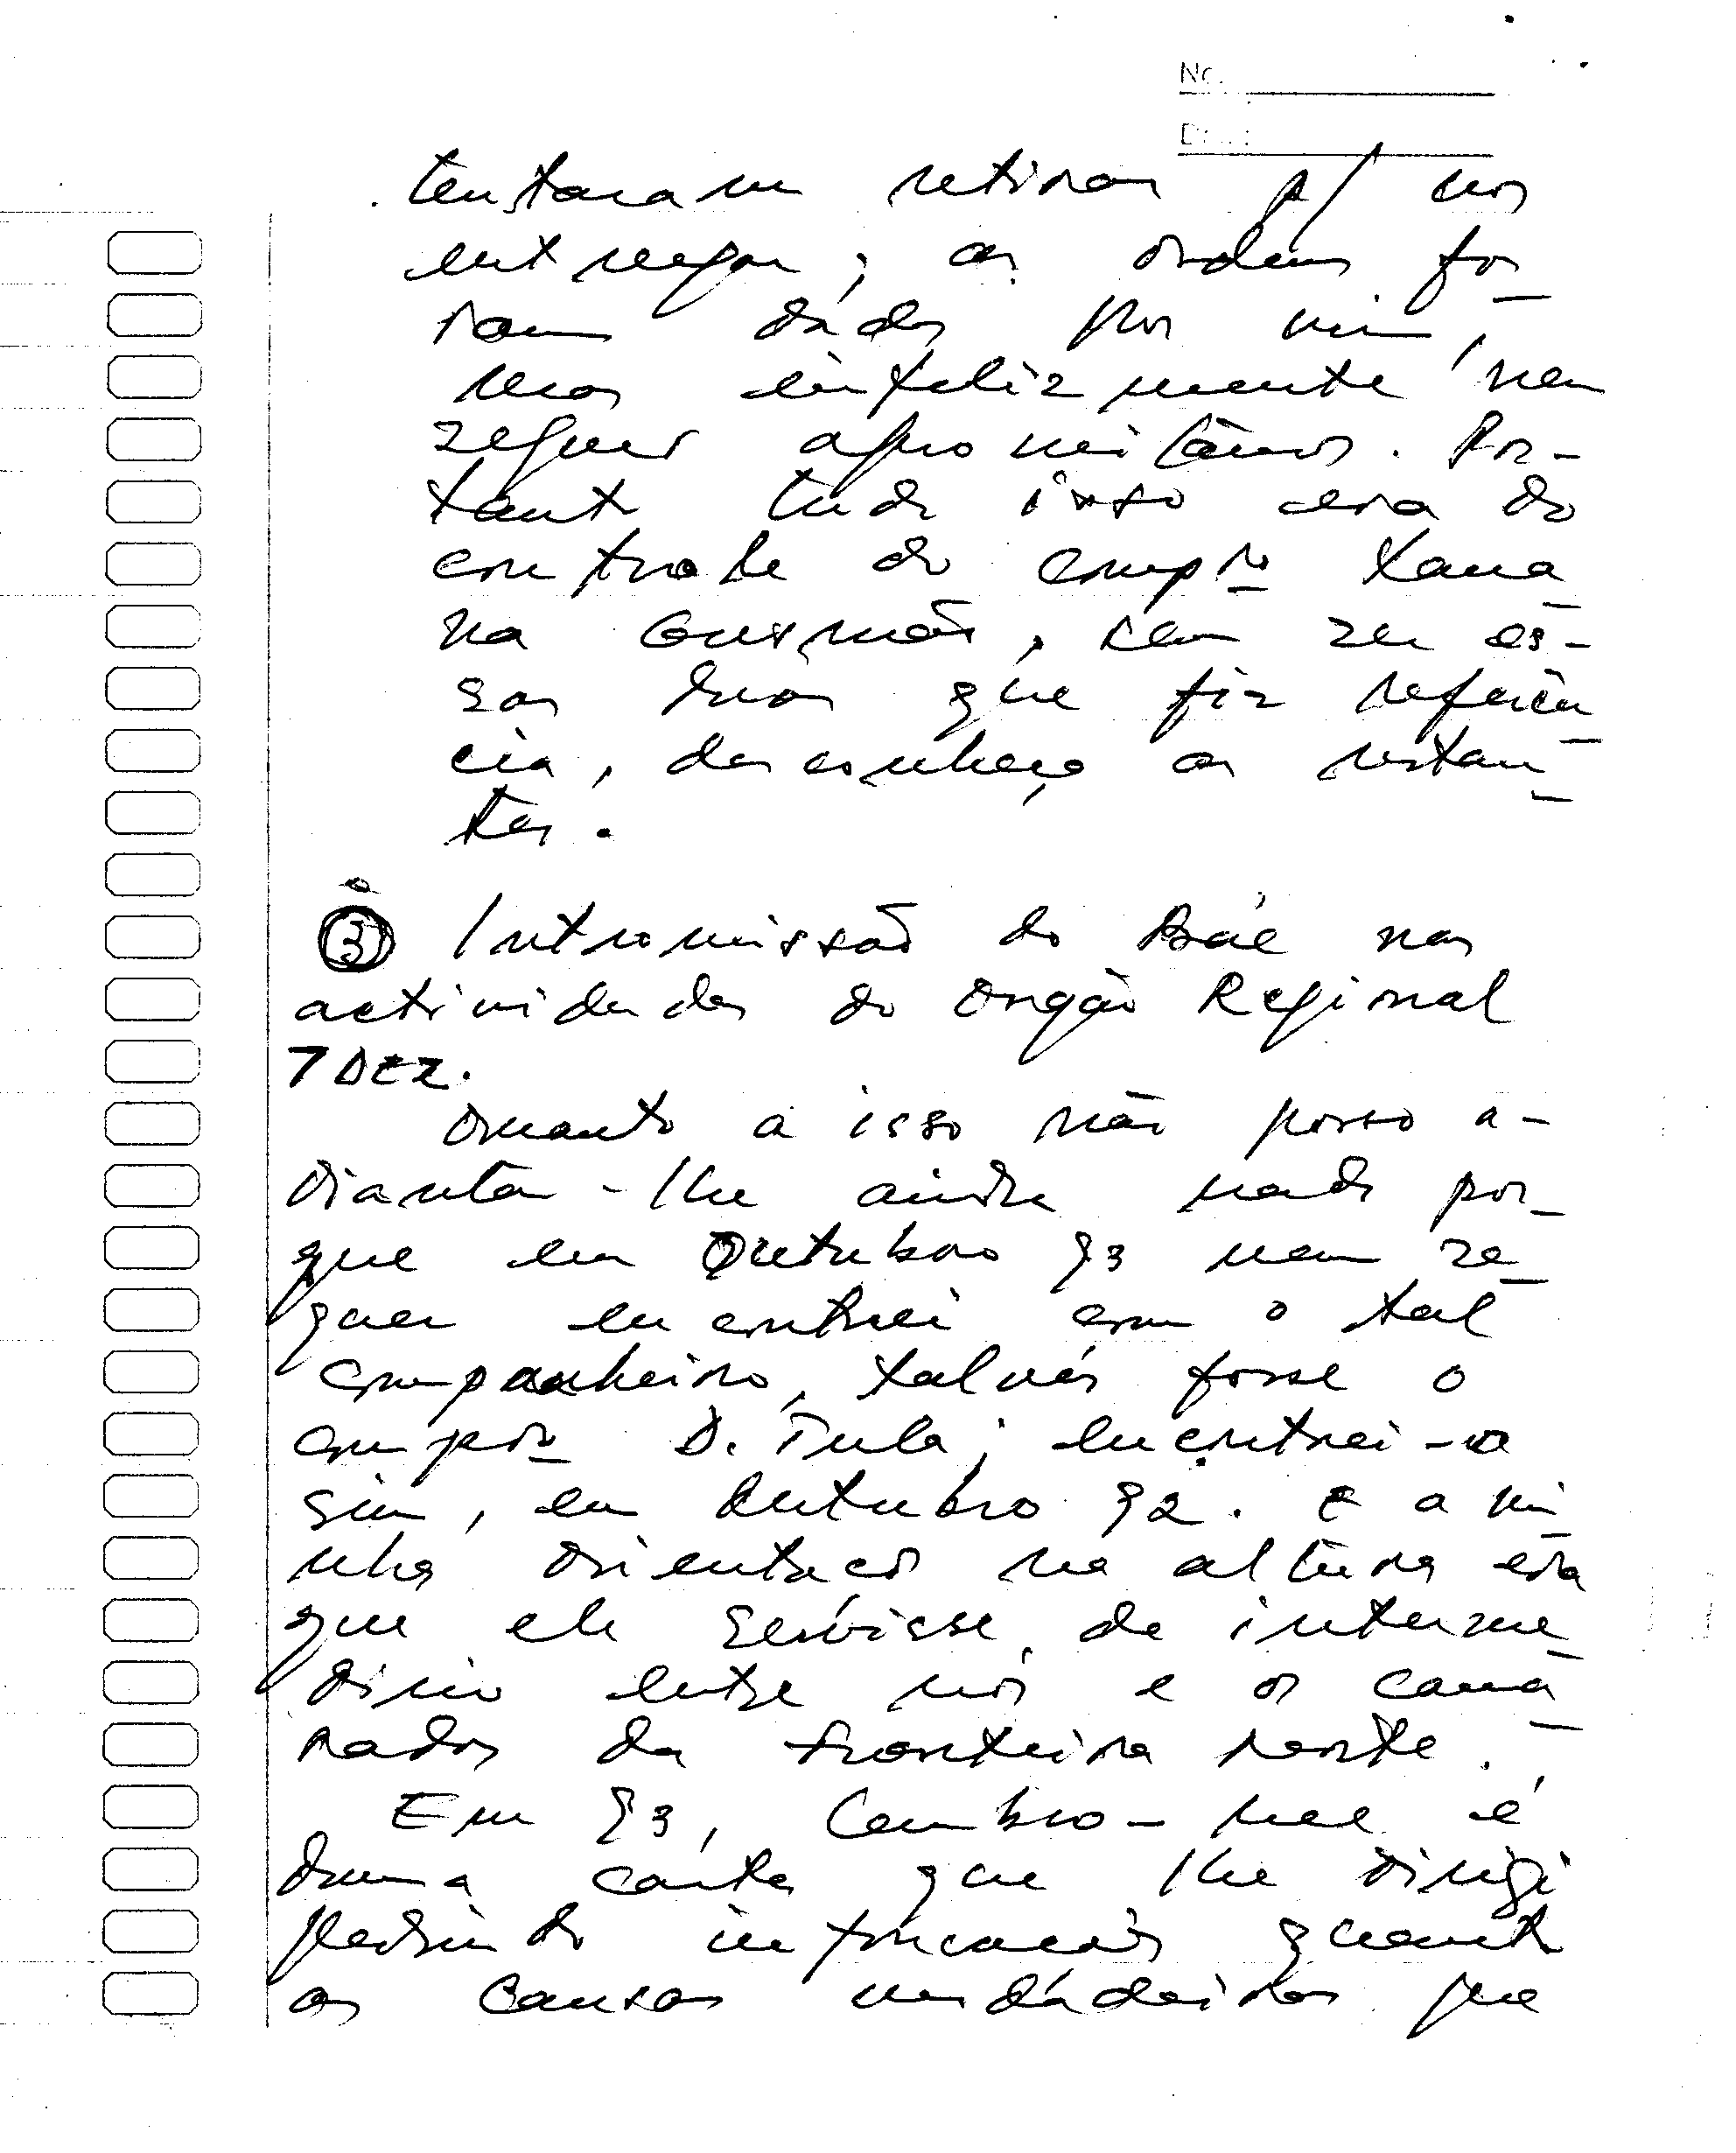 No.
tentaram retirar p/ nos
entregar; as ordens fo-
ram dadas por mim,
mas infelizmente nem
sequer aproveitámos. Por-
tanto tudo isso era do
controle do compro Xana
na Gusmão, sem ser es-
sas duas que fiz referên
cia, desconheço as restan
tes.
3 Intromissão do Baé nas
actividades do Orgão Regional
7 DEZ.
Quanto a isso não posso a-
diantar-lhe ainda nada por-
que em Outubro 93 nem se
quer encontrei com o tal
companheiro, talvés fosse o
compro D. Tula; encontrei-o
sim, em Outubro 92. E a mi
nha orientação na altura era
que ele servisse de interme
diário entre nós e os cama
radas da fronteira norte.
Em 93, lembro-me é
duma carta que lhe dirigi
pedindo informações quanto
as causas verdadeiras que